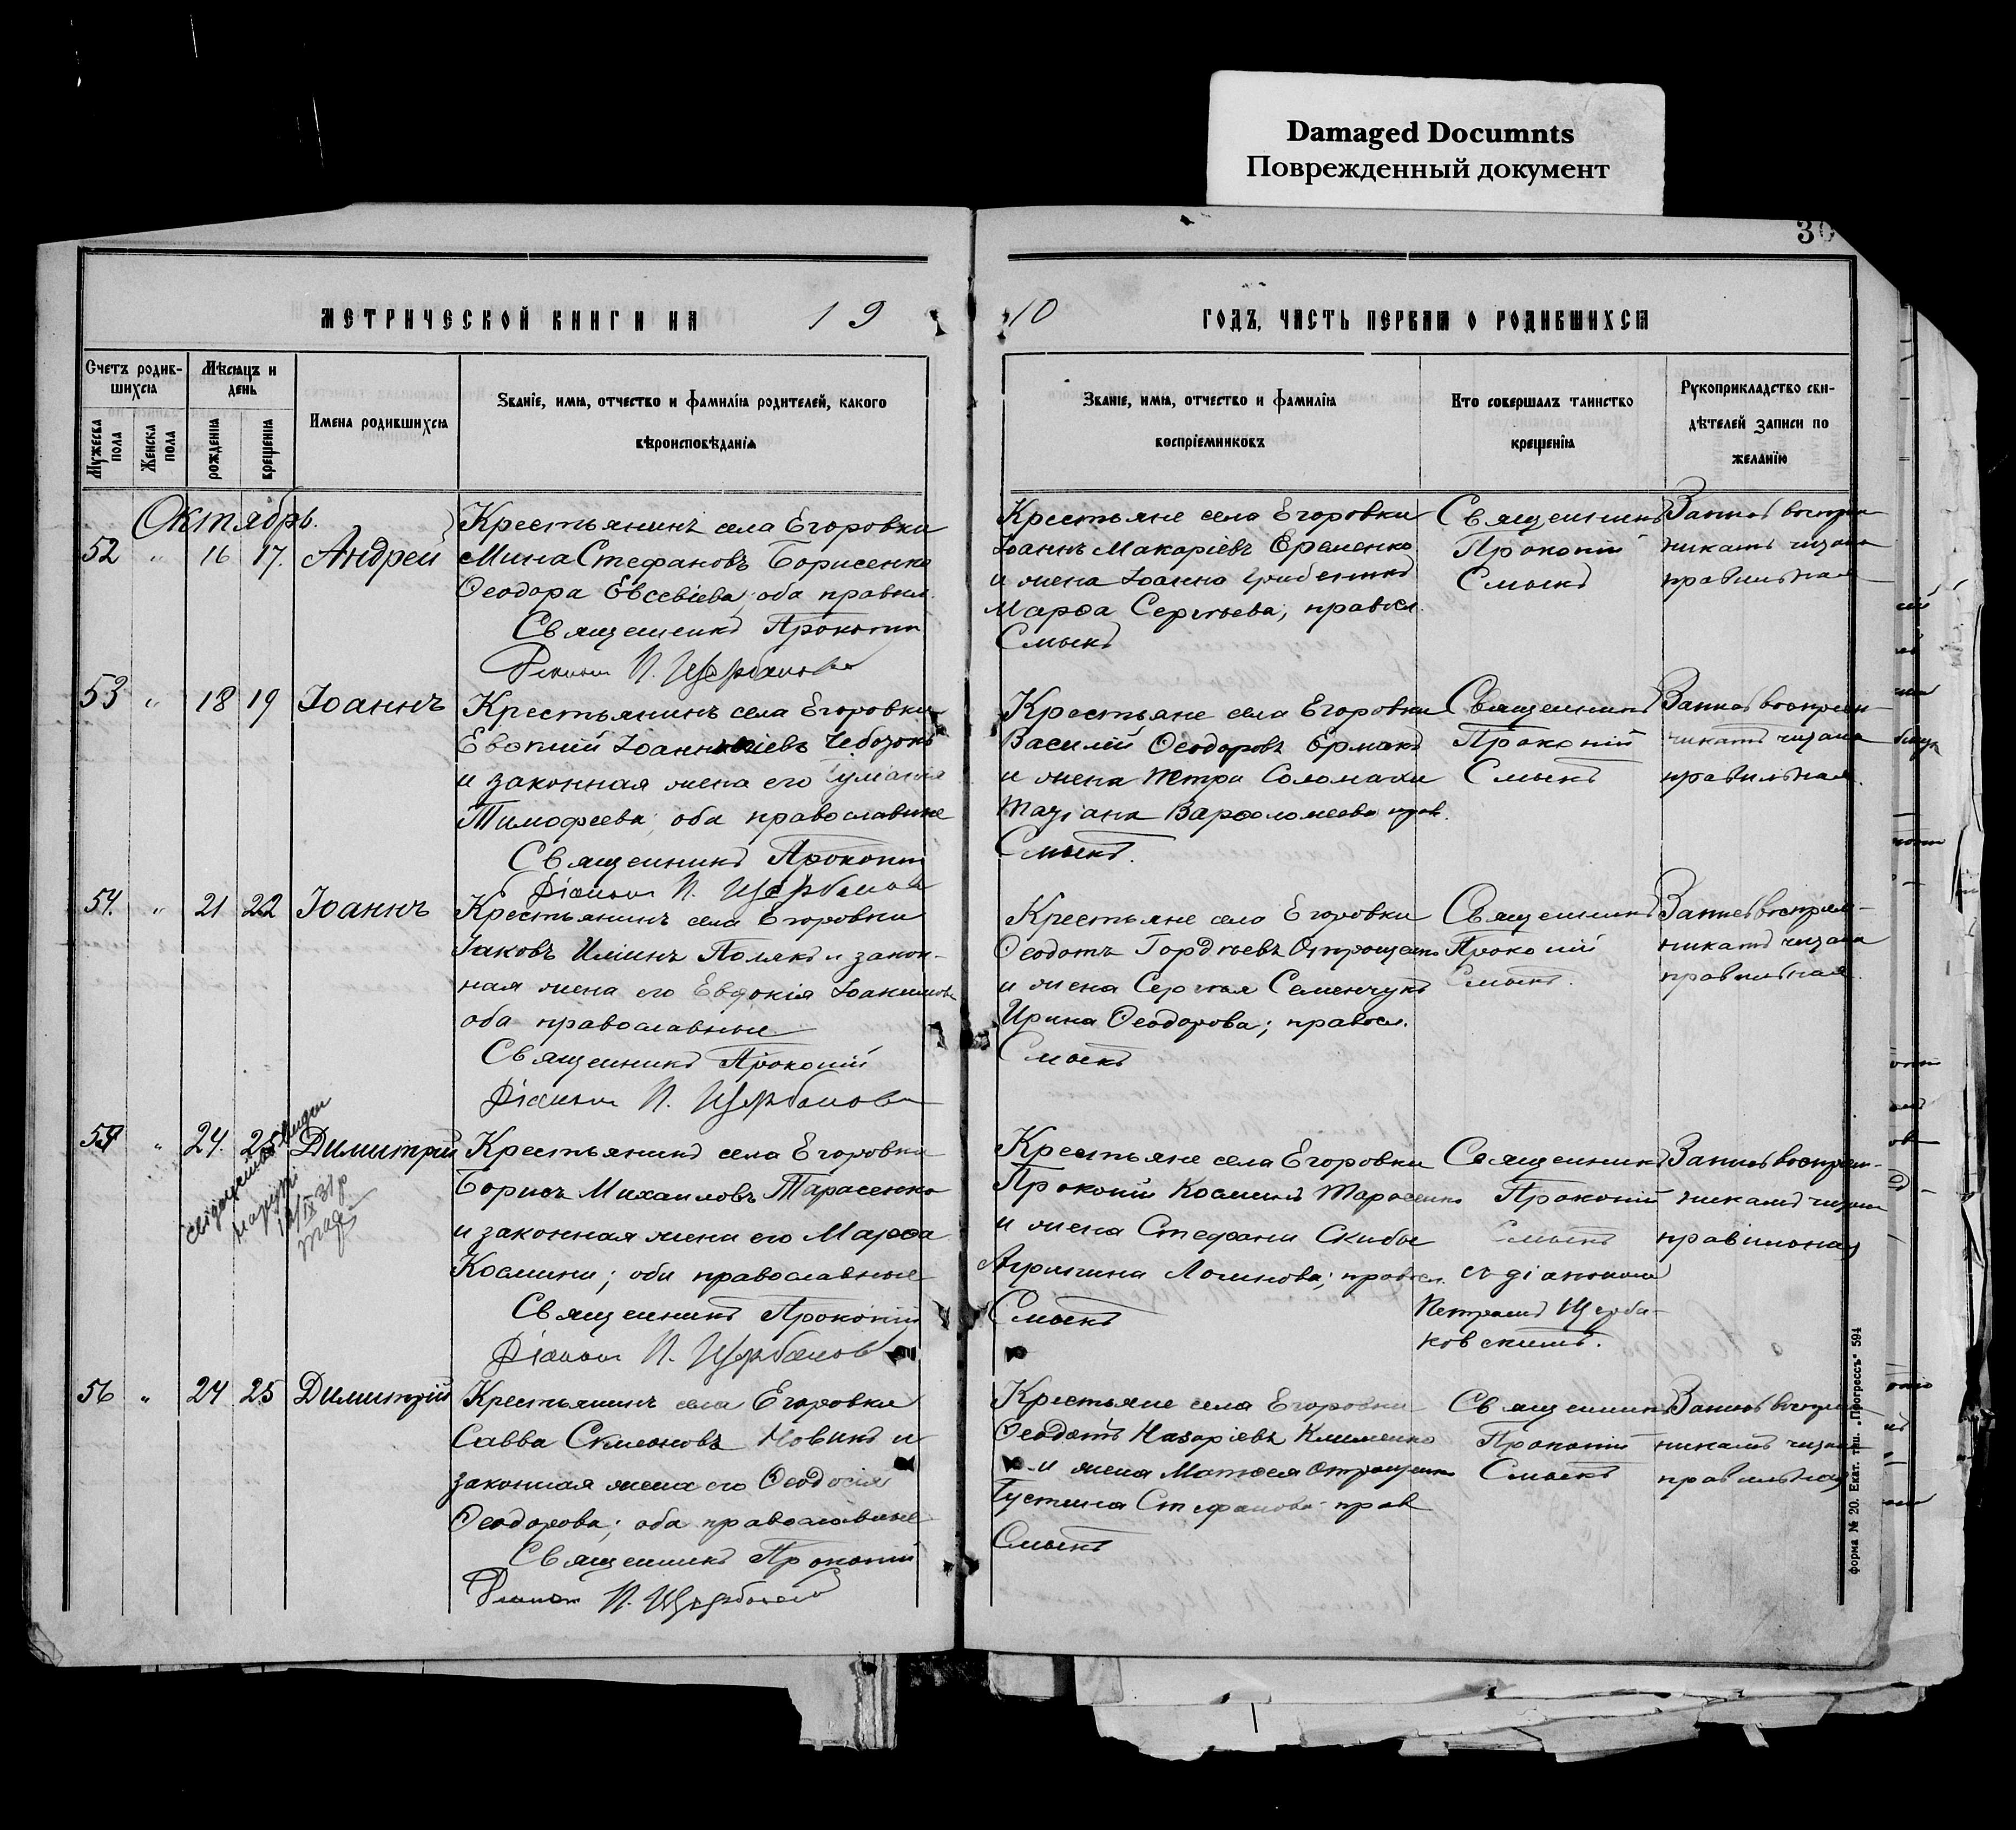 Damaged Documnts
Поврежденный документ
30
МЕТРИЧЕСКОЙ КНИГИ НА 19
10 ГОДЪ, ЧАСТЬ ПЕРВАЯ О РОДИВШИХСЯ
Счетъ родив-
шихся
Мѣсяцъ и
день
Мужеска пола
Женска пола
рожденія
крещенія
Имена родившихся
Званіе, имя, отчество и фамилія родителей, какого
вѣроисповѣданія
Званіе, имя, отчество и фамилія
воспріемниковъ
Кто совершалъ таинство
крещенія
Рукоприкладство сви-
дѣтелей записи по
желанію
Октябрь.
52 " 16 17. Андрей
Крестьянинъ села Егоровки
Мина Стефановъ Борисенко
Ѳеодора Евсевіева; оба правосл.
Священникъ Прокопій
Діаконъ П. Щербаков
Крестьяне села Егоровки
Іоаннъ Макаріевъ Еременко
и жена Іоанна
Марѳа Сергѣева; правосл.
Смыкъ
Священникъ
Прокопій
Смыкъ
Запись воспріем-
никамъ читана
правильная
53 " 18 19 Іоаннъ
Крестьянинъ села Егоровки
Евѳимій
и законная жена его Іуліанія
Тимофеева; оба православные
Священникъ Прокопій
Діаконъ П. Щербаков
Крестьяне села Егоровки
Василій Ѳеодоровъ Ермакъ
и жена Петра Соломахи
Татіана Варѳоломеева прав.
Смыкъ.
Священникъ
Прокопій
Смыкъ
Запись воспріем-
никамъ читана
правильная.
54. " 21 22 Іоаннъ
Крестьянинъ села Егоровки
Іаковъ Иліинъ Полякъ и закон-
ная жена его Евдокія Іоакимова
оба православные
Священникъ Прокопій
Діаконъ П. Щербаков
Крестьяне села Егоровки
Ѳеодотъ Гордѣевъ Отрощенко
и жена Сергѣя Семенчукъ
Ирина Ѳеодорова; правосл.
Смыкъ
Священникъ
Прокопій
Смыкъ.
Запись воспріем-
никамъ читана
правильная.
55 " 24. 25 Димитрій
Крестьянинъ села Егоровки
Борисъ Михаиловъ Тарасенко
и законная жена его Марѳа
Космина; оба православные
Священникъ Прокопій
Діаконъ П. Щербаков
Крестьяне села Егоровки
Прокопій Косминъ Тарасенко
и жена Стефана Скибы
Агрипина Логинова; правосл.
Смыкъ
Священникъ
Прокопій
Смыкъ
съ діакономъ
Петромъ Щерба-
ковскимъ.
Запись воспріем-
никамъ читана
правильная
56 " 24 25 Димитрій
Крестьянинъ села Егоровки
Савва Симеоновъ Новикъ и
законная жена его Ѳеодосія
Ѳеодорова; оба православные
Священникъ Прокопій
Діаконъ П. Щербаков
Крестьяне села Егоровки
Ѳеодотъ Назаріевъ Клименко
и жена Матѳея Отрощенко
Іустина Стефанова прав
Смыкъ
Священникъ
Прокопій
Смыкъ
Запись воспріем-
никамъ читана
правильная
форма № 20. Екат. тип. „Прогрессъ“ 594